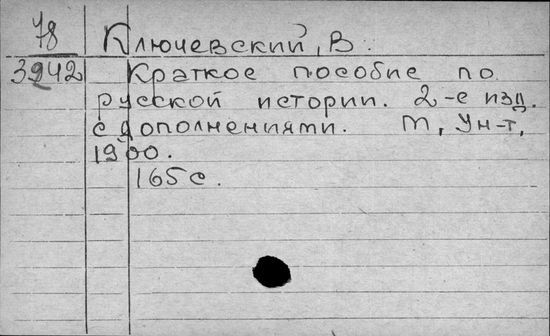 78
Ключевский, В.
3942 Краткое пособие по
русской истории. 2-е изд.
с дополнениями. М, Ун-т,
1900.
165 с.